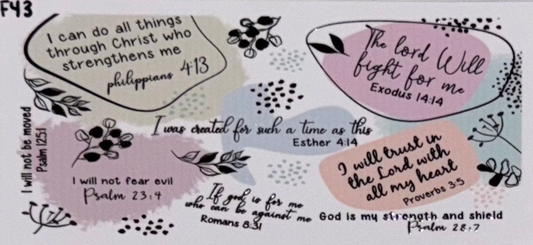 F43
I can do all things
through Christ who
strengthens me
philippians 4:13
The lord Will
fight for me
Exodus 14:14
I will not be moved
Psalm 125:1
I was created for such a time as this
Esther 4:14
I will not fear evil
Psalm 23:4
I will trust in
the Lord with
all my heart
Proverbs 3:5
If god is for me
who can be against me
Romans 8:31
God is my strength and shield
Psalm 28:7